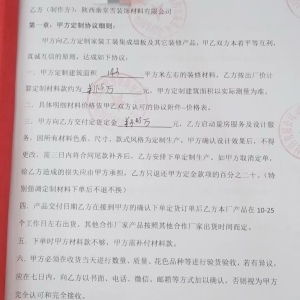 乙方（制作方）：陕西傲芳雪装饰材料有限公司
第一章：甲方定制协议细则：
甲方向乙方定制家装工装集成墙板及其它装修产品，甲乙双方本着平等互利、
真诚互信的原则，达成如下协议：
一、甲方定制建筑面积 143 平方米左右的装修材料，乙方按出厂价计
算定制材料款为 元，甲方定制建筑面积以实际测量为准。
二、具体明细材料价格依甲乙双方认可的协议附件--价格表。
三、甲方向乙方交付定货定金 元，乙方启动量房服务及设计服
务，因所有材料色系、尺寸、款式风格为定制生产，甲方确认设计效果后，不得
更改，第三日内将合同尾款补齐后，乙方安排下单定制生产。如甲方取消定单，
给乙方造成的损失应由甲方承担，乙方只退还甲方定金款项的百分之二十。（特
别强调定制材料下单后不退不换）
四、产品交付日期乙方在接到甲方的确认下单定货订单后乙方本厂产品在 10-25
个工作日左右出货，其他合作厂家产品按照其他合作厂家出货时间而定。
五、下单时甲方材料款不够，甲方需补付材料款。
六、甲方必须在收货当天进行数量、质量、花色品种等进行验货验收，若有异议，
应在七日内，向乙方以书面、电话、微信、邮箱等方式加以确认，否则视为甲方
完全认可和完全接收。